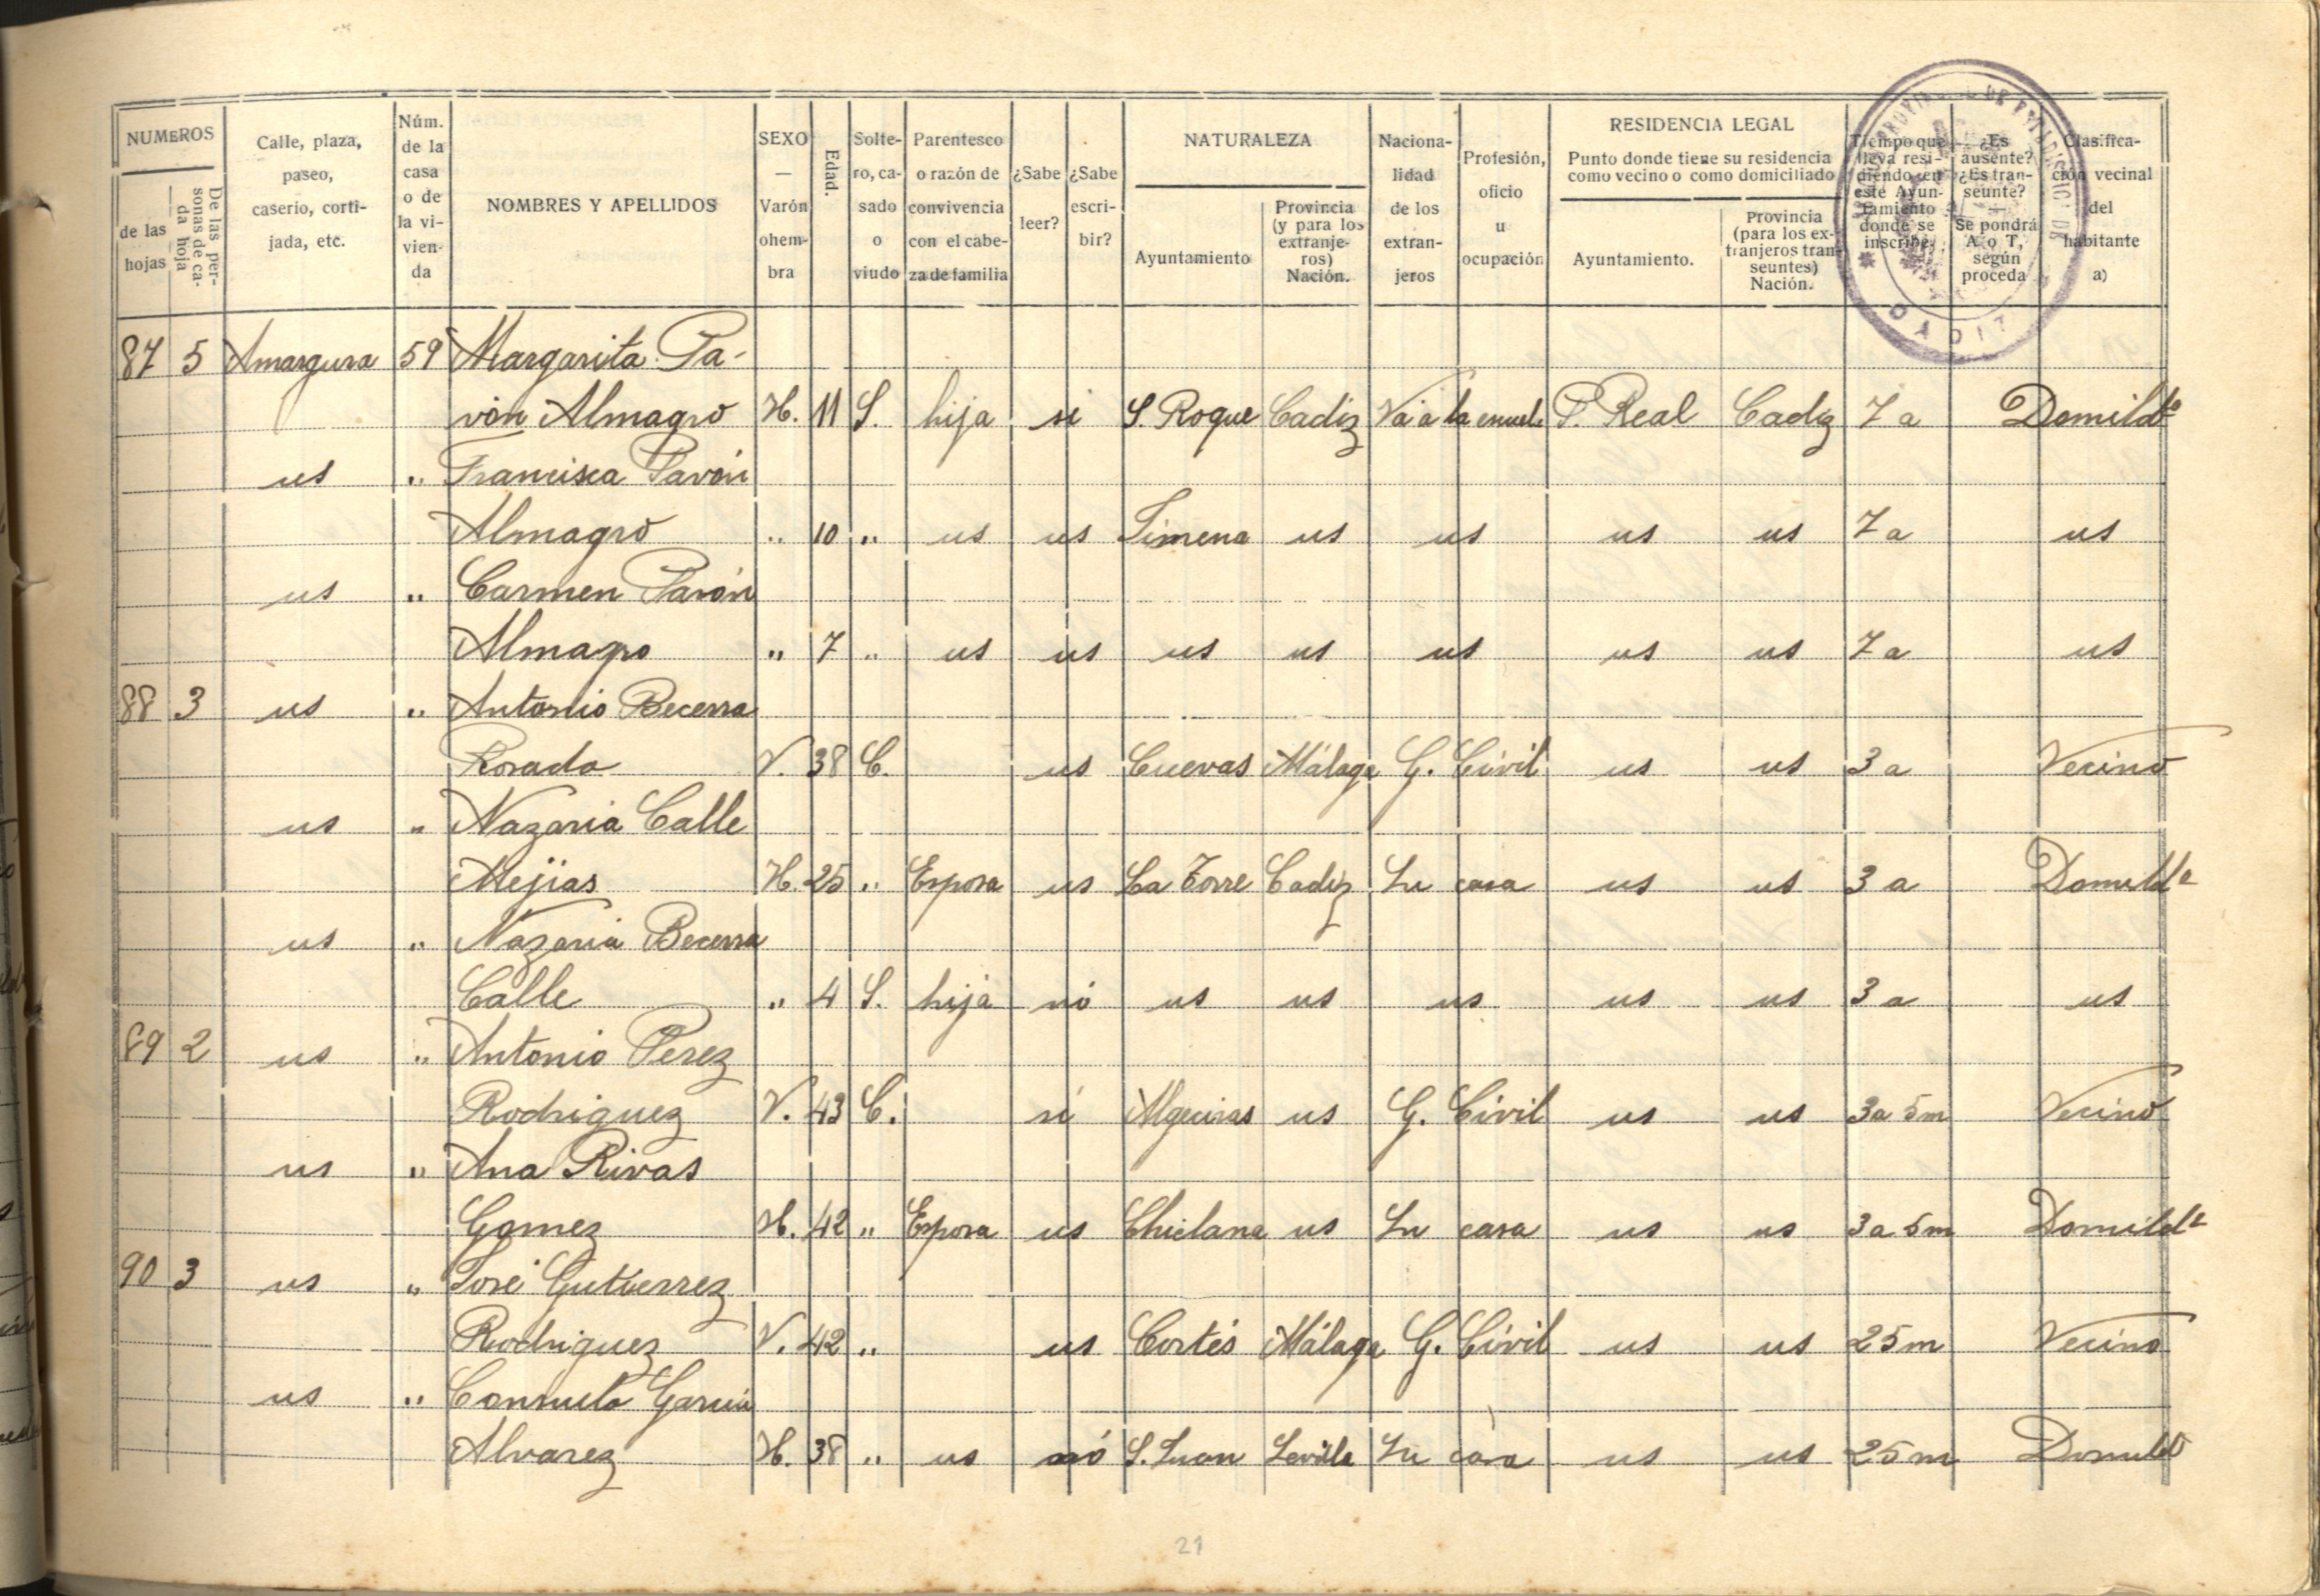 NUMEROS
de las hojas
De las personas de cada hoja
Calle, plaza, paseo, caserio, cortijada, etc.
Núm. de la casa o de la vivienda
NOMBRES Y APELLIDOS
SEXO — Varón ohembra
Edad.
Soltero, casado o viudo
Parentesco o razón de convivencia con el cabeza de familia
¿Sabe leer?
¿Sabe escribir?
NATURALEZA
Ayuntamiento
Provincia (y para los extranjeros) Nación.
Nacionalidad de los extranjeros
Profesión, oficio u ocupación
RESIDENCIA LEGAL
Punto donde tiene su residencia como vecino o como domiciliado
Ayuntamiento.
Provincia (para los extranjeros transeuntes) Nación.
Tiempo que lleva residiendo en este Ayuntamiento donde se inscribe.
¿Es ausente? ¿Es transeunte? — Se pondrá A o T, según proceda
Clasificación vecinal del habitante a)
CADIZ
87 5 Amargura 59 Margarita Pa-
vón Almagro H. 11 S. hija si S. Roque Cadiz Va a la escuela P. Real Cadiz 7 a Domildo
us " Francisca Pavón
Almagro " 10 " us us Jimena us us us us 7 a us
us " Carmen Pavón
Almagro " 7 " us us us us us us us 7 a us
88 3 us " Antonio Becerra
Rosado V. 38 C. us Cuevas Málaga G. Civil us us 3 a Vecino
us " Nazaria Calle
Mejias H. 25 " Esposa us La Torre Cadiz Su casa us us 3 a Domilda
us " Nazaria Becerra
Calle " 4 S. hija nó us us us us us 3 a us
89 2 us " Antonio Perez
Rodriguez V. 43 C. si Algeciras us G. Civil us us 3a 5m Vecino
us " Ana Rivas
Gomez H. 42 " Esposa us Chiclana us Su casa us us 3a 5m Domilda
90 3 us " José Gutierrez
Rodriguez V. 42 " us Cortés Málaga G. Civil us us 25m Vecino
us " Consuelo Garcia
Alvarez H. 38 " us nó S. Juan Sevilla Su casa us us 25m Domildo
21